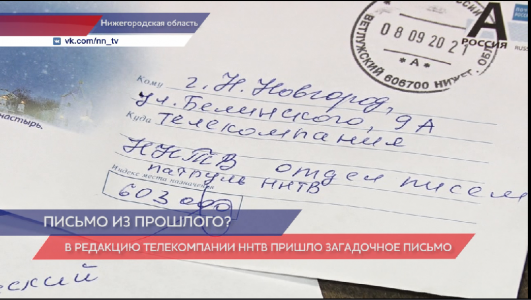 Нижегородская область
vk.com/nn_tv
А
РОССИЯ
08 09 20 21
* А *
ВЕТЛУЖСКИЙ 606700 НИЖЕГ. ОБЛ.
настырь.
Кому г. Н. Новгород,
ул. Белинского, 9А
Куда Телекомпания
ННТВ отдел писем
патруль ННТВ
Индекс места назначения
603 000
ПИСЬМО ИЗ ПРОШЛОГО?
В РЕДАКЦИЮ ТЕЛЕКОМПАНИИ ННТВ ПРИШЛО ЗАГАДОЧНОЕ ПИСЬМО
ский